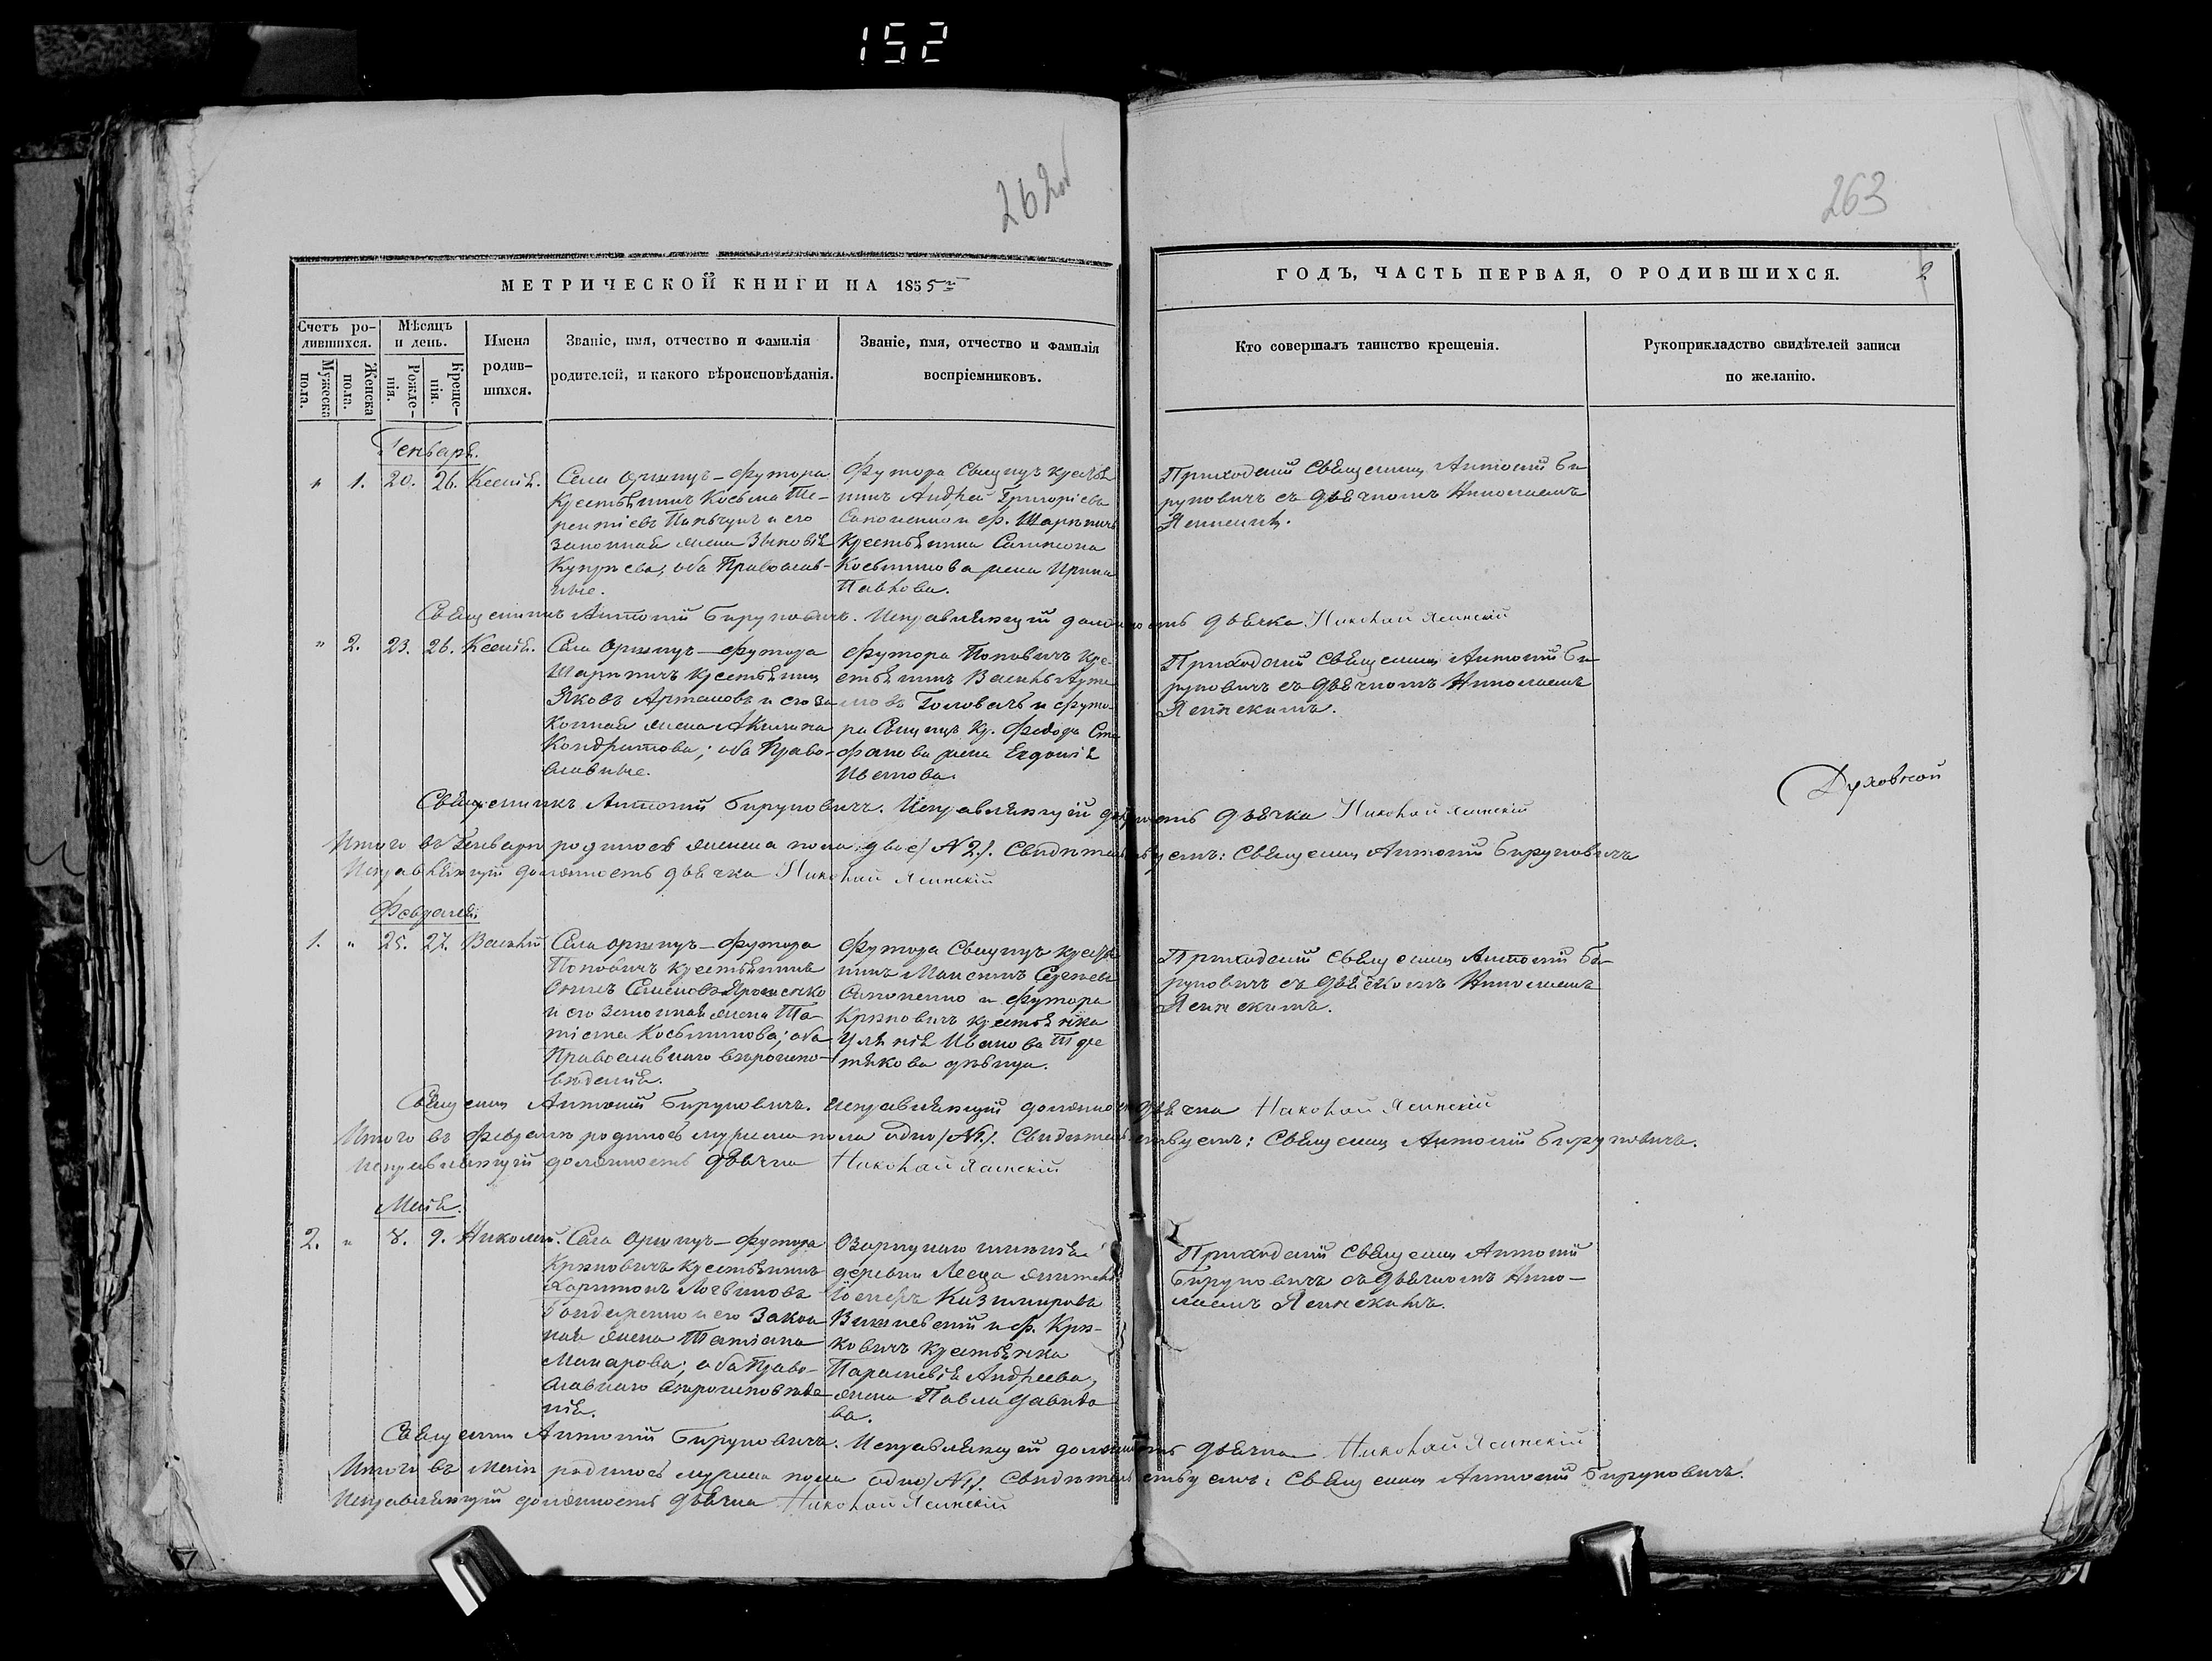 152
262
263
МЕТРИЧЕСКОЙ КНИГИ НА 1855
ГОДЪ, ЧАСТЬ ПЕРВАЯ, О РОДИВШИХСЯ.
2
Счетъ ро-
дившихся.
Мужеска
пола.
Женска
пола.
Мѣсяцъ
и день.
Рожде-
нія.
Креще-
нія.
Имена
родив-
шихся.
Званіе, имя, отчество и фамилія
родителей, и какого вѣроисповѣданія.
Званіе, имя, отчество и фамилія
воспріемниковъ.
Кто совершалъ таинство крещенія.
Рукоприкладство свидѣтелей записи
по желанію.
Генваря.
" 1. 20. 26. Ксенія.
Села футора
Крестьянинъ Косьма Те-
рентіевъ и его
законная жена
оба Православ-
ные.
Футора
нинъ Андрей Григоріевъ
и ф.
Крестьянина
Косьминова жена Ирина
Павлова.
Приходскій Священникъ Антоній Би
руковичъ съ дьячкомъ Николаемъ
Священникъ Антоній Бируковичъ. Исправляющій должность дьячка Николай Ясинскій
" 2. 23. 26. Ксенія.
Села футора
крестьянинъ
Яковъ Артемовъ и его за
конная жена Акилина
Кондратова; оба Право-
славные.
футора Поповичъ Кре-
стьянинъ Василь
Головачъ и футо-
ра Кр. Федора Сте
фанова жена
Иванова.
Приходскій Священникъ Антоній Би
руковичъ съ дьячкомъ Николаемъ
Ясинскимъ.
Духовной
Священникъ Антоній Бируковичъ. Исправляющій должность дьячка Николай Ясинскій
Итого въ Генварѣ родилось женска пола двое /№ 2/. Свидѣтельствуемъ: Священникъ Антоній Бируковичъ
Исправляющій должность дьячка Николай Ясинскій
Февраля.
1. " 25. 27. Василій
Села футора
Поповичъ крестьянинъ
Семеновъ
и его законная жена Та-
тіана Косьминова; оба
Православнаго вѣроиспо-
вѣданія.
Футора
нинъ Максимъ Сергѣевъ
и футора
Крюковичъ крестьянка
Иванова
дѣвица.
Приходскій Священникъ Антоній Би-
руковичъ съ дьячкомъ Николаемъ
Ясинскимъ.
Священникъ Антоній Бируковичъ. Исправляющій должность дьячка Николай Ясинскій
Итого въ Февралѣ родилось мужеска пола одно /№ 1/. Свидѣтельствуемъ: Священникъ Антоній Бируковичъ.
Исправляющій должность дьячка Николай Ясинскій
Маія.
2. " 8. 9. Николай.
Села футора
Крюковичъ крестьянинъ
Харитонъ Логвиновъ
Бондаренко и его закон
ная жена Татіана
Макарова; оба Право-
славнаго вѣроисповѣда
нія.
деревни
Казимировъ
Вишневскій и ф. Крю-
ковичъ крестьянка
Параскевія Андреева,
жена Павла Давидо
ва.
Приходскій Священникъ Антоній
Бируковичъ съ дьячкомъ Нико-
лаемъ Ясинскимъ.
Священникъ Антоній Бируковичъ. Исправляющій должность дьячка Николай Ясинскій
Итого въ Маіи родилось мужеска пола одно /№ 1/. Свидѣтельствуемъ: Священникъ Антоній Бируковичъ.
Исправляющій должность дьячка Николай Ясинскій